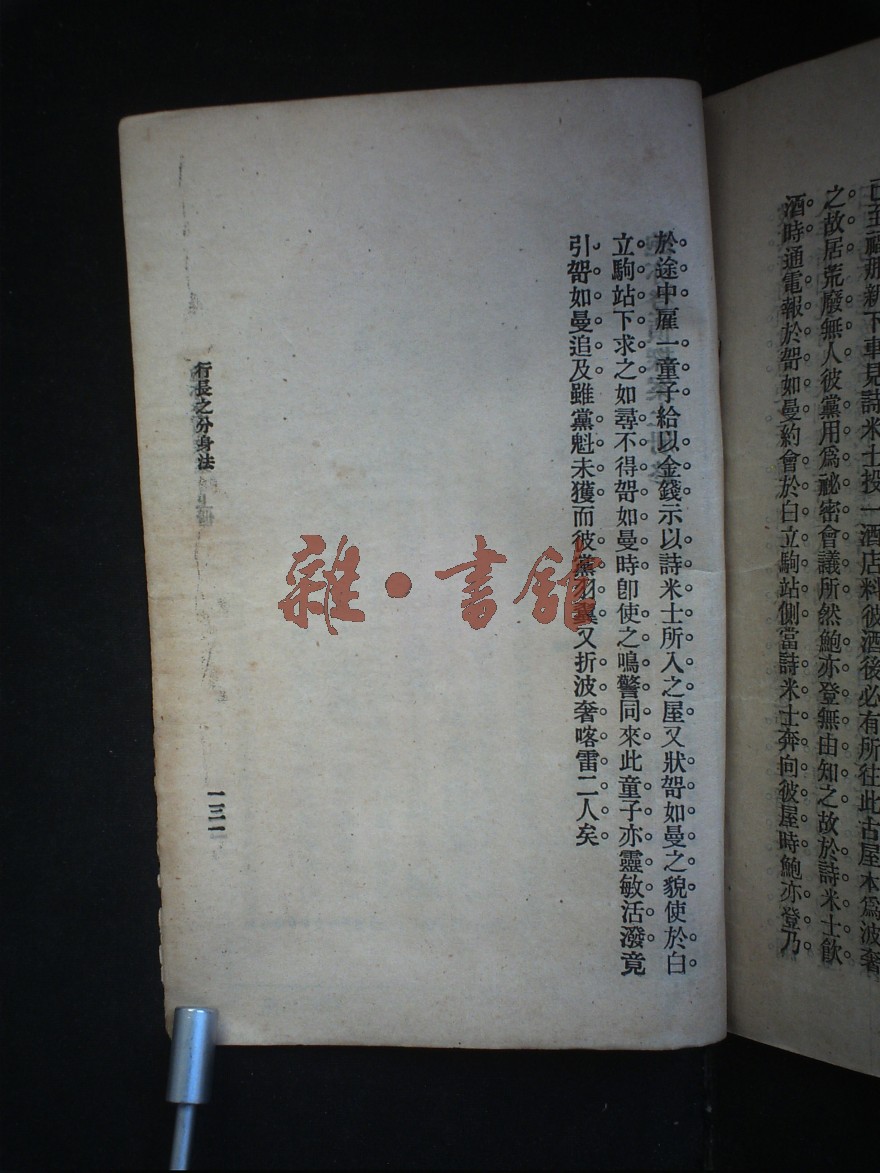 已至福那新下車見詩米士投一酒店料彼酒後必有所往此古屋本爲波奢
之故居荒廢無人彼黨用爲祕密會議所然鮑亦登無由知之故於詩米士飮
酒時通電報於哿如曼約會於白立駒站側當詩米士奔向彼屋時鮑亦登乃
於途中雇一童子給以金錢示以詩米士所入之屋又狀哿如曼之貌使於白
立駒站下求之如尋不得哿如曼時卽使之鳴警同來此童子亦靈敏活潑竟
引哿如曼追及雖黨魁未獲而彼黨羽翼又折波奢喀雷二人矣
行長之分身法
一三一
雜·書館